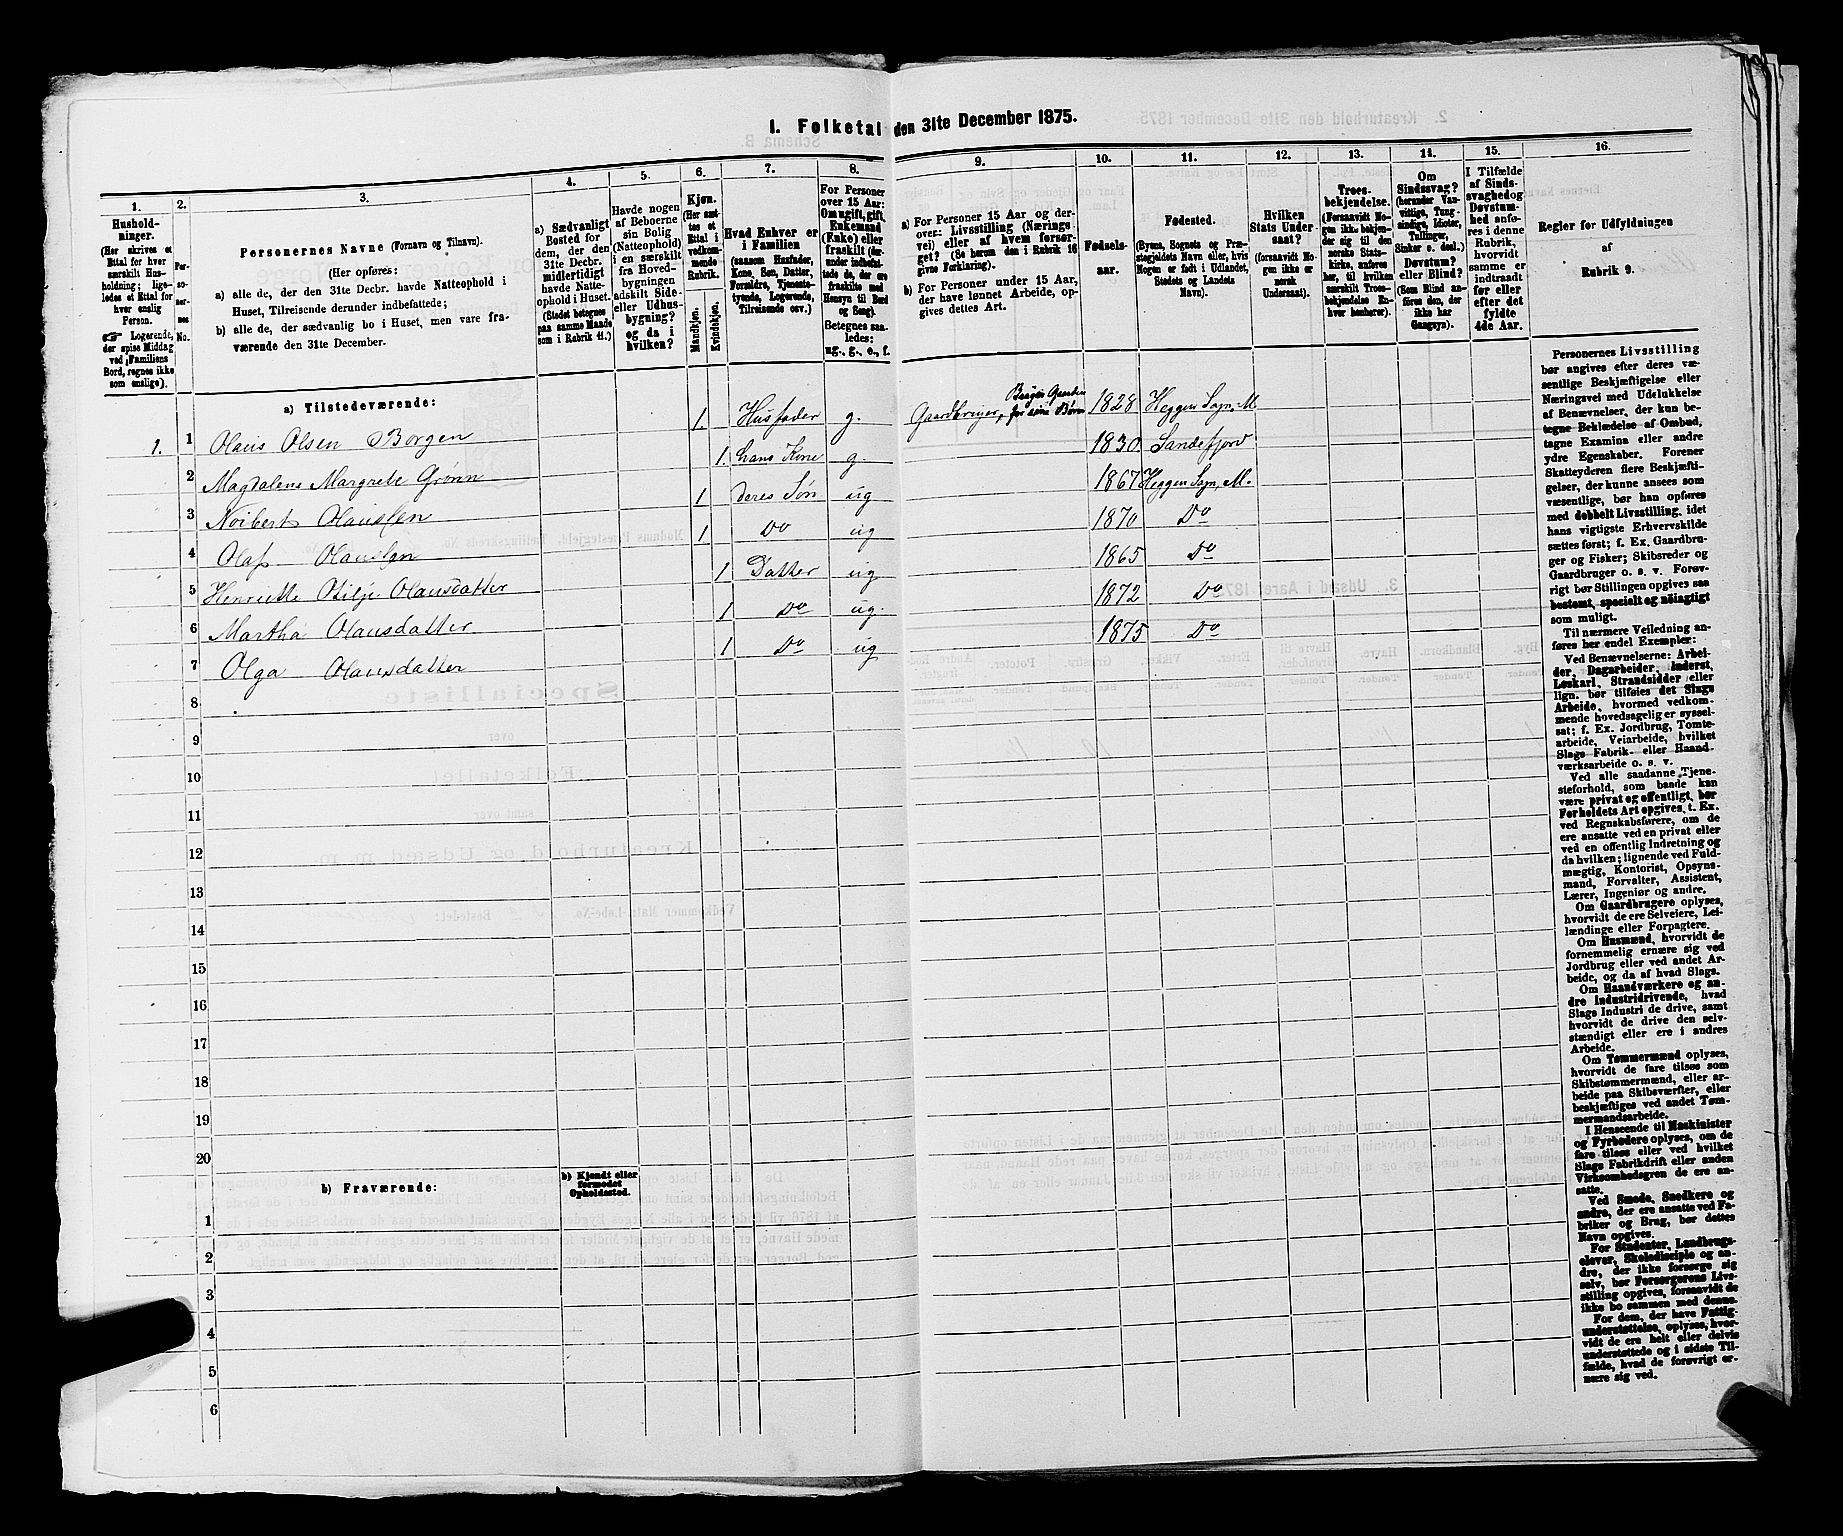 I. Folketal den 31te December 1875.
1. 2. 3. 4. 5. 6. 7. 8. 9. 10. 11. 12. 13. 14. 15. 16.
Husholdninger.
(Her skrives et Ettal for hver særskilt Husholdning; ligeledes et Ettal for hver enslig Person.
☞ Logerende, der spise Middag ved Familiens Bord, regnes ikke som enslige).
Personernes No.
Personernes Navne (Fornavn og Tilnavn).
(Her opføres:
a) alle de, der den 31te Decbr. havde Natteophold i Huset, Tilreisende derunder indbefattede;
b) alle de, der sædvanlig bo i Huset, men vare fraværende den 31te December.
a) Sædvanligt Bosted for dem, der den 31te Decbr. midlertidigt havde Natteophold i Huset. (Stedet betegnes paa samme Maade som i Rubrik 11.)
Havde nogen af Beboerne sin Bolig (Natteophold) i en særskilt fra Hovedbygningen adskilt Side- eller Udhusbygning? og da i hvilken?
Kjøn.
(Her sættes et Ettal i vedkommende Rubrik.
Mandkjøn.
Kvindekjøn.
Hvad Enhver er i Familien
(saasom Husfader, Kone, Søn, Datter, Forældre, Tjenestetyende, Logerende, Tilreisende osv.)
For Personer over 15 Aar: Om ugift, gift, Enkemand (Enke) eller fraskilt (derunder indbefattede de, der ere fraskilte med Hensyn til Bord og Seng).
Betegnes saaledes: ug., g., e., f.
a) For Personer 15 Aar og derover: Livsstilling (Næringsvei) eller af hvem forsørget? (Se herom den i Rubrik 16 givne Forklaring).
b) For Personer under 15 Aar, der have lønnet Arbeide, opgives dettes Art.
Fødselsaar.
Fødested.
(Byens, Sognets og Præstegjeldets Navn eller, hvis Nogen er født i Udlandet, Stedets og Landets Navn).
Hvilken Stats Undersaat?
(forsaavidt Nogen ikke er norsk Undersaat).
Troesbekjendelse.
(Forsaavidt Nogen ikke bekjender sig til den norske Statskirke, anføres her, til hvilken særskilt Troesbekjendelse Enhver henhører).
Om Sindssvag?
(herunder Vanvittige, Tungsindige, Idioter, Tullinger, Sinker o. desl.)
Døvstum? eller Blind?
(Som Blind anføres den, der ikke har Gangsyn).
I Tilfælde af Sindssvaghed og Døvstumhed anføres i denne Rubrik, hvorvidt samme er indtraadt før eller efter det fyldte 4de Aar.
Regler for Udfyldningen af Rubrik 9.
a) Tilstedeværende:
1. 1 Olaus Olsen Borgen 1. Husfader g. Gaardbruger, Bruger Gaarden for sine Børn 1828 Heggen Sogn, M
2 Magdalens Margrete Grønn 1. hans Kone g. 1830 Sandefjord
3 Noibert Olauslen 1 deres Søn ug 1867 Heggen Sogn, M.
4 Olaf Olauslen 1 Do ug 1870 Do
5 Henriette Otilje Olausdatter 1 Datter ug 1865 Do
6 Martha Olausdatter 1 Do ug. 1872 Do
7 Olga Olausdatter 1 Do ug 1875 Do
8
9
10
11
12
13
14
15
16
17
18
19
20
b) Fraværende:
b) Kjendt eller formodet Opholdssted.
1
2
3
4
5
6
Personernes Livsstilling
bør angives efter deres væ-
sentlige Beskjæftigelse eller
Næringsvei med Udelukkelse
af Benævnelser, der kun be-
tegne Beklædelse af Ombud,
tagne Examina eller andre
ydre Egenskaber. Forener
Skatteyderen flere Beskjæfti-
gelser, der kunne ansees som
væsentlige, bør han opføres
med dobbelt Livsstilling, idet
hans vigtigste Erhvervskilde
sættes først; f. Ex. Gaardbru-
ger og Fisker; Skibsreder og
Gaardbruger o. s. v. Forøv-
rigt bør Stillingen opgives saa
bestemt, specielt og nöiagtigt
som muligt.
Til nærmere Veiledning an-
føres her endel Exempler:
Ved Benævnelserne: Arbei-
der, Dagarbeider, Inderst,
Løskarl, Strandsidder eller
lign. bør tilføies det Slags
Arbeide, hvormed vedkom-
mende hovedsagelig er syssel-
sat; f. Ex. Jordbrug, Tomte-
arbeide, Veiarbeide, hvilket
Slags Fabrik- eller Haand-
værksarbeide o. s. v.
Ved alle saadanne Tjene-
steforhold, som baade kan
være privat og offentligt, bør
Forholdets Art opgives, t. Ex.
ved Regnskabsførere, om de
ere ansatte ved en privat eller
ved en offentlig Indretning og
da hvilken; lignende ved Fuld-
mægtig, Kontorist, Opsyns-
mand, Forvalter, Assistent,
Lærer, Ingeniør og andre.
Om Gaardbrugere oplyses,
hvorvidt de ere Selveiere, Lei-
lændinge eller Forpagtere.
Om Husmænd, hvorvidt de
fornemmelig ernære sig ved
Jordbrug eller ved andet Ar-
beide, og da af hvad Slags.
Om Haandværkere og an-
dre Industridrivende, hvad
Slags Industri de drive, samt
hvorvidt de drive den selv-
stændigt eller ere i andres
Arbeide.
Om Tømmermænd oplyses,
hvorvidt de fare tilsøs som
Skibstømmermænd, eller ar-
beide paa Skibsværfter, eller
beskjæftiges ved andet Tøm-
mermandsarbeide.
I Henseende til Maskinister
og Fyrbødere oplyses, om de
fare tilsøs eller ved hvilket
Slags Fabrikdrift eller anden
Virksomhedsgren de ere an-
satte.
Ved Smede, Snedkere og
andre, der ere ansatte ved Fa-
briker og Brug, bør dettes
Navn opgives.
For Studenter, Landbrugs-
elever, Skoledisciple og an-
dre, der ikke forsørge sig
selv, bør Forsørgerens Livs-
stilling opgives, forsaavidt de
ikke bo sammen med denne.
For dem, der have Fattig-
understøttelse, oplyses, hvor-
vidt de ere helt eller delvis
understøttede og i sidste Til-
fælde, hvad de forøvrigt er-
nære sig ved.